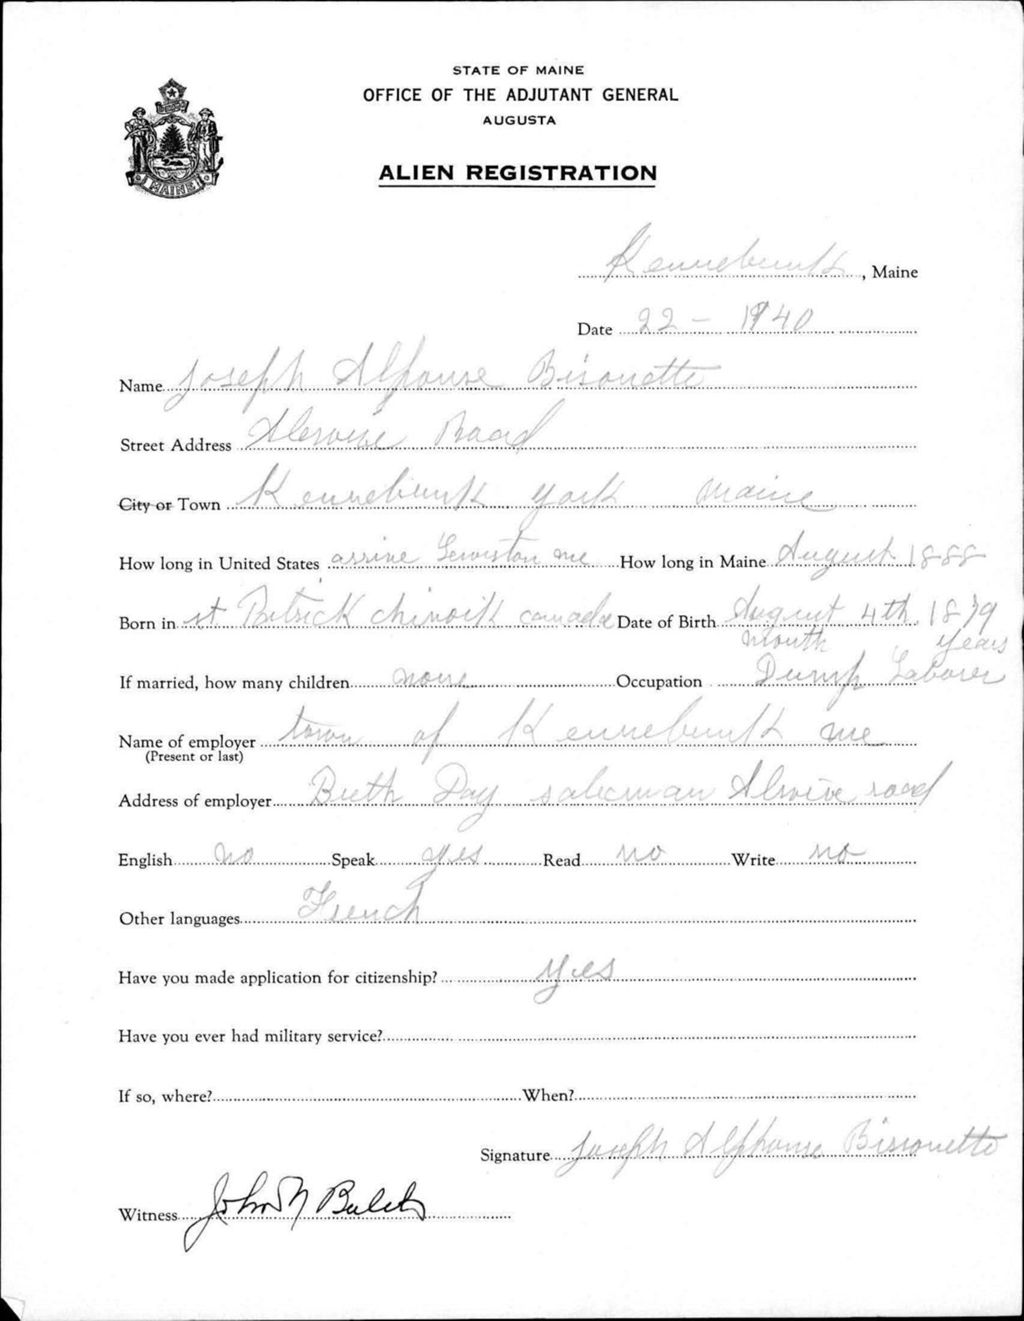 STATE OF MAINE
OFFICE OF THE ADJUTANT GENERAL
AUGUSTA
ALIEN REGISTRATION
MAINE
Kennebunk, Maine
Date 22 - 1940
Name Joseph Alphonse Bisonette
Street Address Alewive Road
City or Town Kennebunk York Maine
How long in United States arrive Lewiston me How long in Maine August 1888
Born in st Patrick canada Date of Birth August 4th 1879
month years
If married, how many children none Occupation Dump Laborer
Name of employer town of Kennebunk me
(Present or last)
Address of employer Day Alwive road
English no Speak yes Read no Write no
Other languages French
Have you made application for citizenship? yes
Have you ever had military service?
If so, where? When?
Signature Joseph Alphonse Bissonette
Witness John N